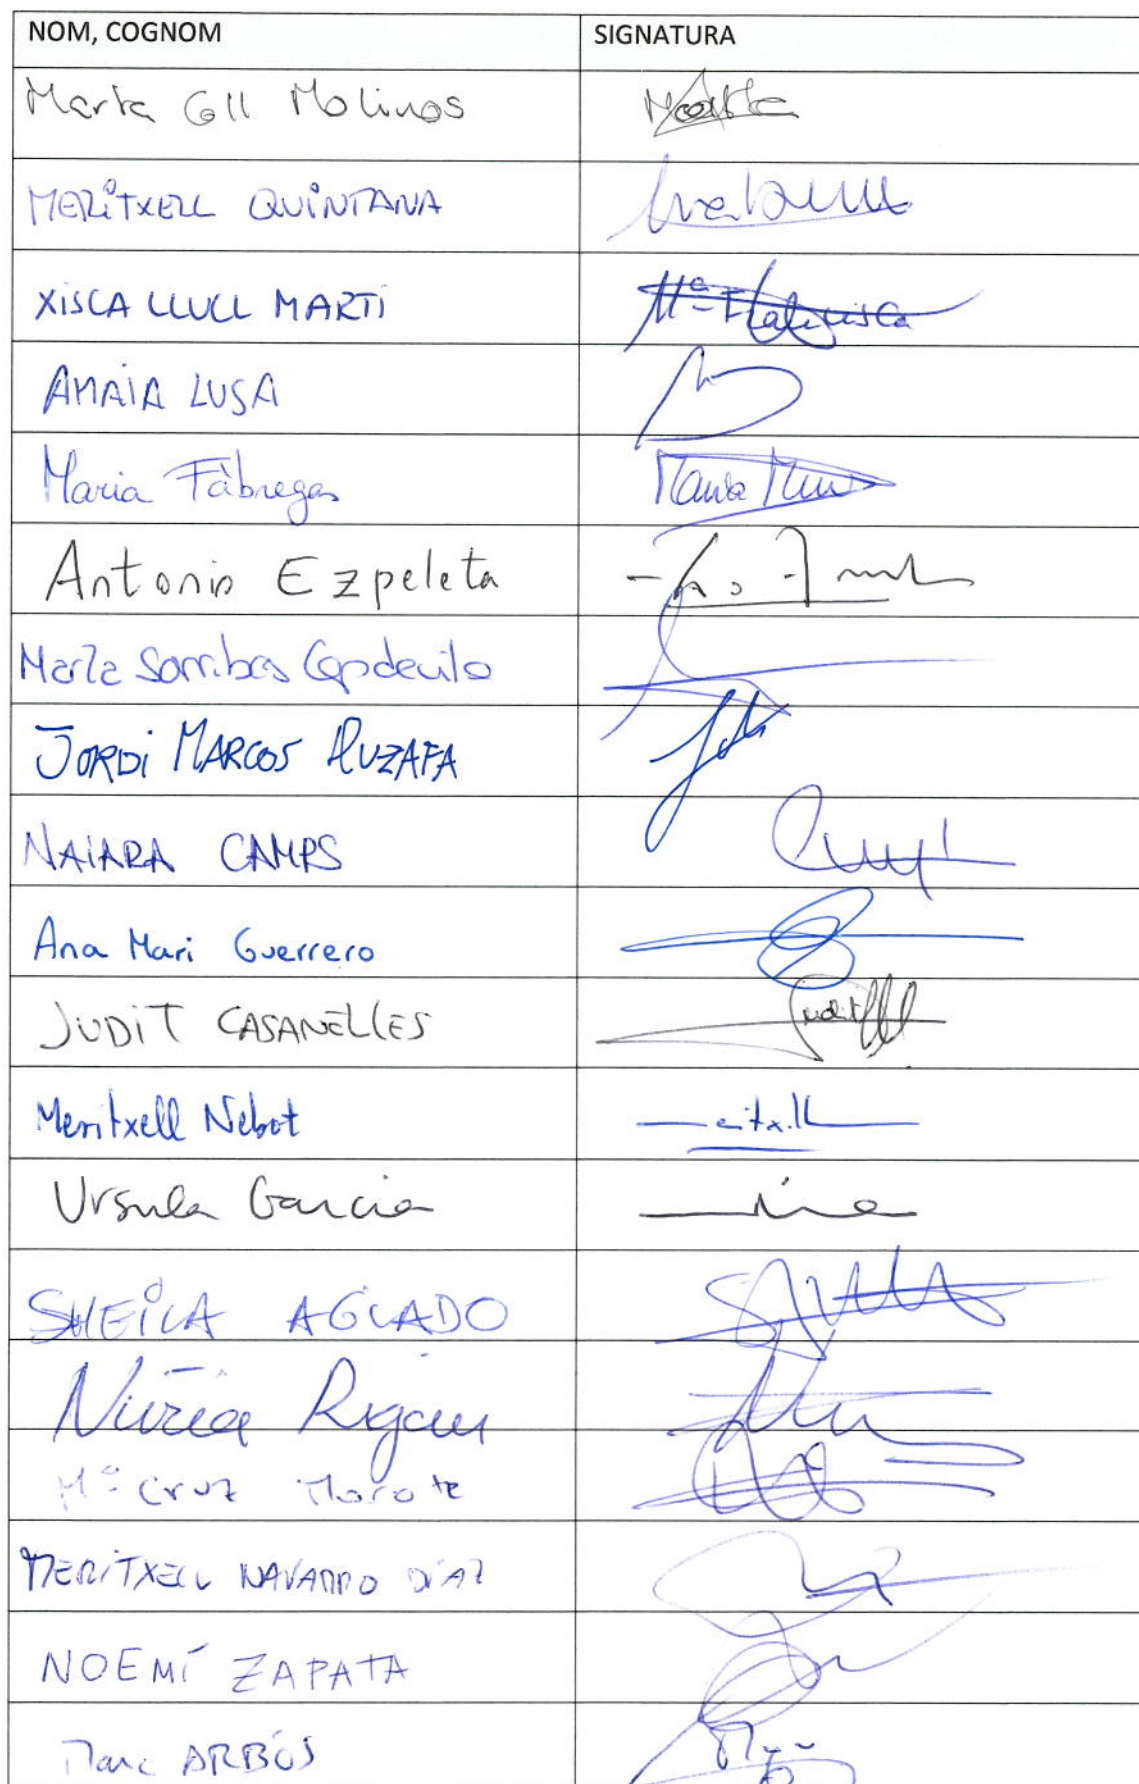 NOM, COGNOM SIGNATURA
Marta Gll Molinos Marta
MERITXELL QUINTANA
XISCA LLULL MARTÍ Mª Francisca
AMAIA LUSA
Maria Fàbregas Maria
Antonio Ezpeleta
Marta Sorribas Capdevila
JORDI MARCOS RUZAFA
NAIARA CAMPS
Ana Mari Guerrero
JUDIT CASANELLES Judit
Meritxell Nebot
Ursula Garcia
SHEILA AGUADO
Núria Rigau
Mª Cruz Morote
MERITXELL NAVARRO DÍAZ
NOEMÍ ZAPATA
Marc ARBÓS